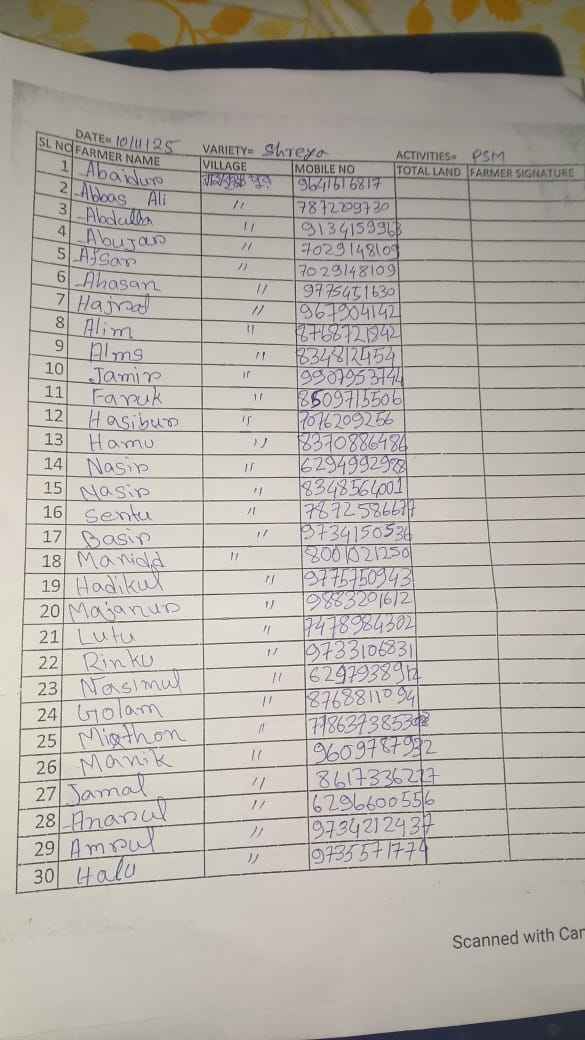 DATE= 10/11/25 VARIETY= Shreya ACTIVITIES= PSM
SL NO FARMER NAME VILLAGE MOBILE NO TOTAL LAND FARMER SIGNATURE
1 9641616817
2 Abbas Ali " 7872209730
3 Abdulla " 9134159963
4 Abujar " 7029148109
5 Afsar " 7029148109
6 Ahasan " 9775451630
7 " 967904142
8 Alim " 8768721842
9 Alms " 834812454
10 Jamir " 9907953744
11 Faruk " 8509715506
12 Hasibur " 7076209256
13 Hamu " 8370886486
14 Nasir " 6294992988
15 Nasir " 8348564001
16 Sentu " 7872586677
17 Basir " 9734150536
18 " 8001021250
19 Hadikul " 9775750943
20 Majanur " 9883201612
21 Lutu " 7478984302
22 Rinku " 9733106831
23 Nasimul " 6297938912
24 Golam " 8768811094
25 "
26 Manik " 9609787932
27 Jamal " 8617336227
28 Anarul " 6296600556
29 Amrul " 9734212437
30 Halu " 9735571774
Scanned with Cam